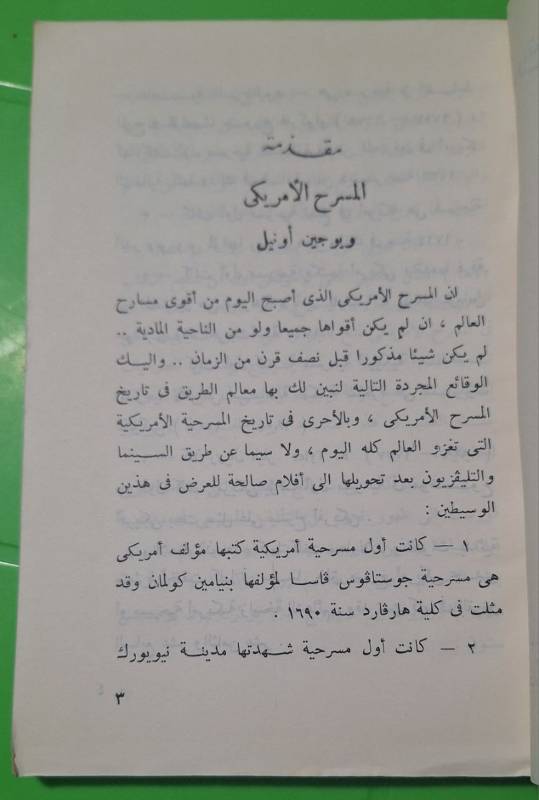 مقدمة
المسرح الأمريكى
ويوجين أونيل
ان المسرح الأمريكى الذى أصبح اليوم من أقوى مسارح
العالم ، ان لم يكن أقواها جميعا ولو من الناحية المادية ..
لم يكن شيئا مذكورا قبل نصف قرن من الزمان .. واليـك
الوقائع المجردة التالية لنبين لك بها معالم الطريق فى تاريخ
المسرح الأمريكى ، وبالأحرى فى تاريخ المسرحية الأمريكية
التى تغزو العالم كله اليوم ، ولا سيما عن طريق السـينما
والتليڤزيون بعد تحويلها الى أفلام صالحة للعرض فى هذين
الوسيطين :
١ — كانت أول مسرحية أمريكية كتبها مؤلف أمريكى
هى مسرحية جوستاڤوس ڤاسا لمؤلفها بنيامين كولمان وقد
مثلت فى كلية هارڤارد سنة ١٦٩٠ .
٢ — كانت أول مسرحية شـهدتها مدينـة نيويورك
٣